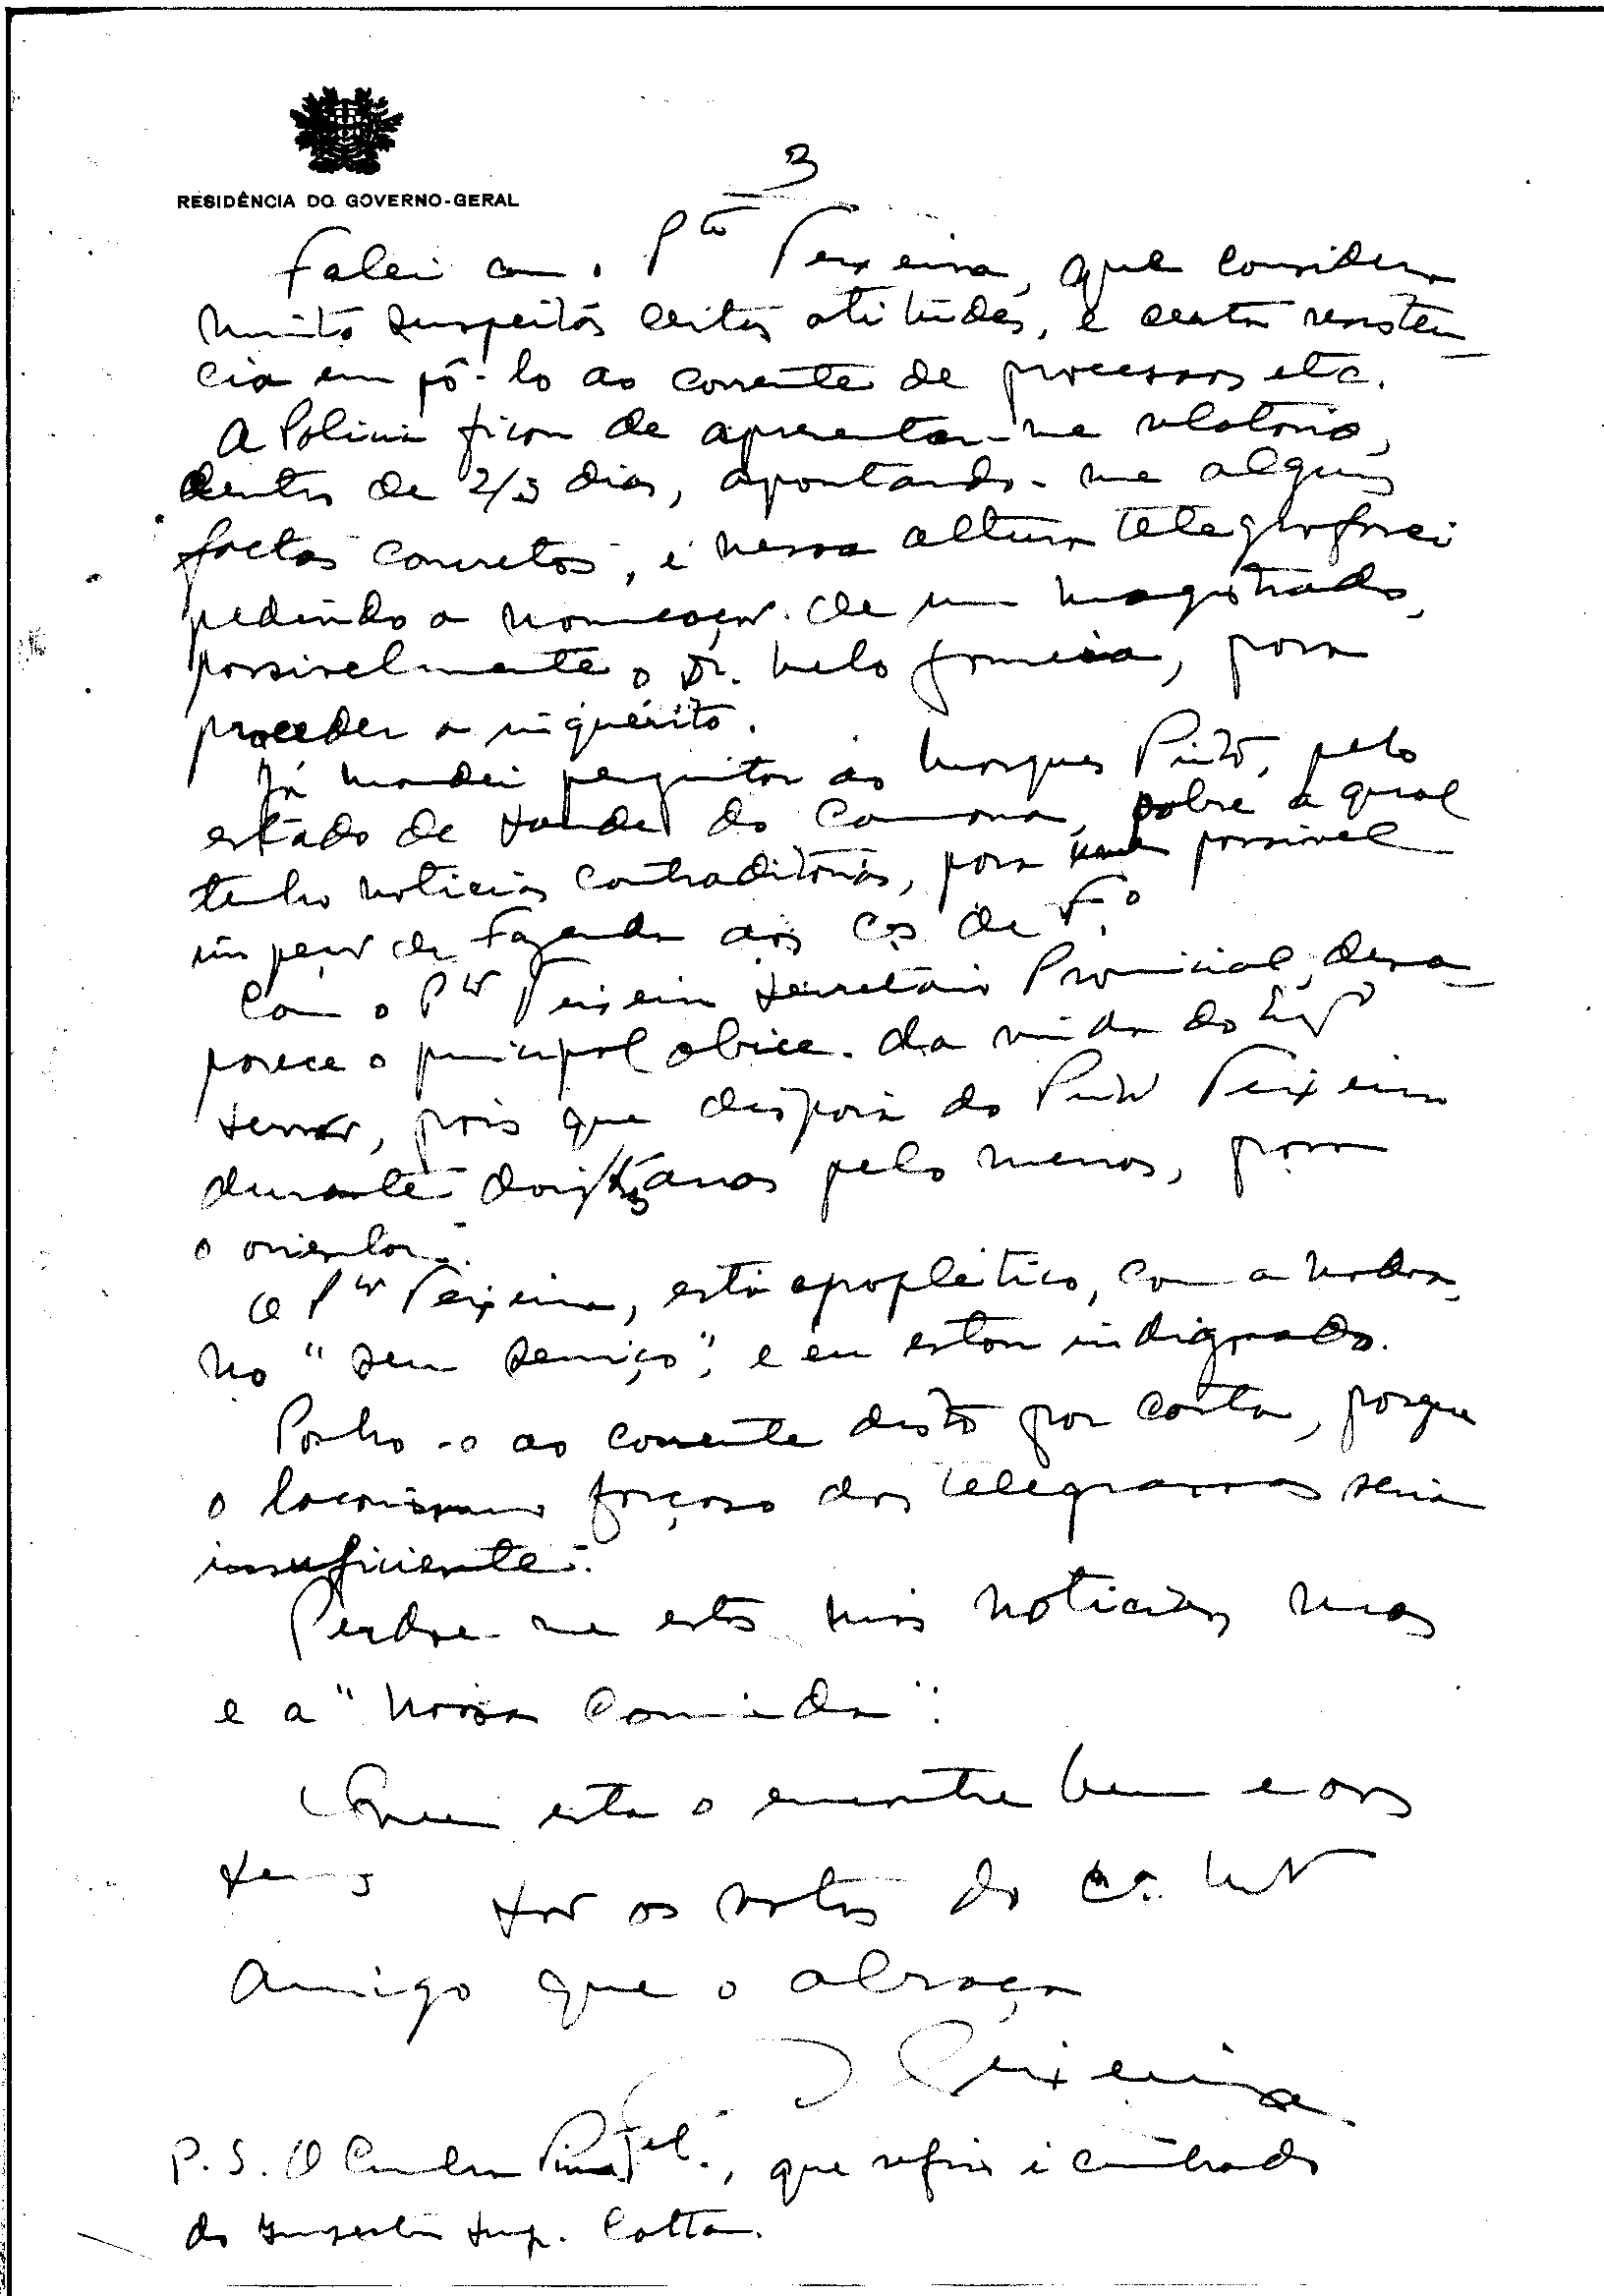 3
RESIDÊNCIA DO GOVERNO-GERAL
Falei com o Pto Teixeira, que considera
muito suspeitas certas atitudes, e certa resistên
cia em pô-lo ao corrente de processos etc.
A Polícia ficou de apresentar-me relatório,
dentro de 2/3 dias, apontando-me alguns
factos concretos, e nessa altura telegrafarei
pedindo a nomeação de um magistrado,
possivelmente o Dr. Melo, para
proceder a inquérito.
Já mandei perguntar ao Marques Pinto, pelo
estado de saude do Camona, sobre a qual
tenho noticias contraditórias, para possivel
de Fazenda aos de
Com o Pto Teixeira Secretário Provincial, desa-
parece o principal obice da vinda do Engº
, pois que disporia do Pinto Teixeira
durante dois/três anos pelo menos, para
o orientar.
O Pto Teixeira, está apoplético, com a
no "seu serviço", e eu estou indignado.
Ponho-o ao corrente disto por carta, porque
o laconismo forçoso dos telegramas seria
insuficiente.
Perdoe-me estas más noticias mas
e a "nossa comida".
Que esta o encontre bem e aos
seus são os votos do
amigo que o abraça
Teixeira
P.S. O Cunha, que refiro é cunhado
do Inspector Sup. Cotta.